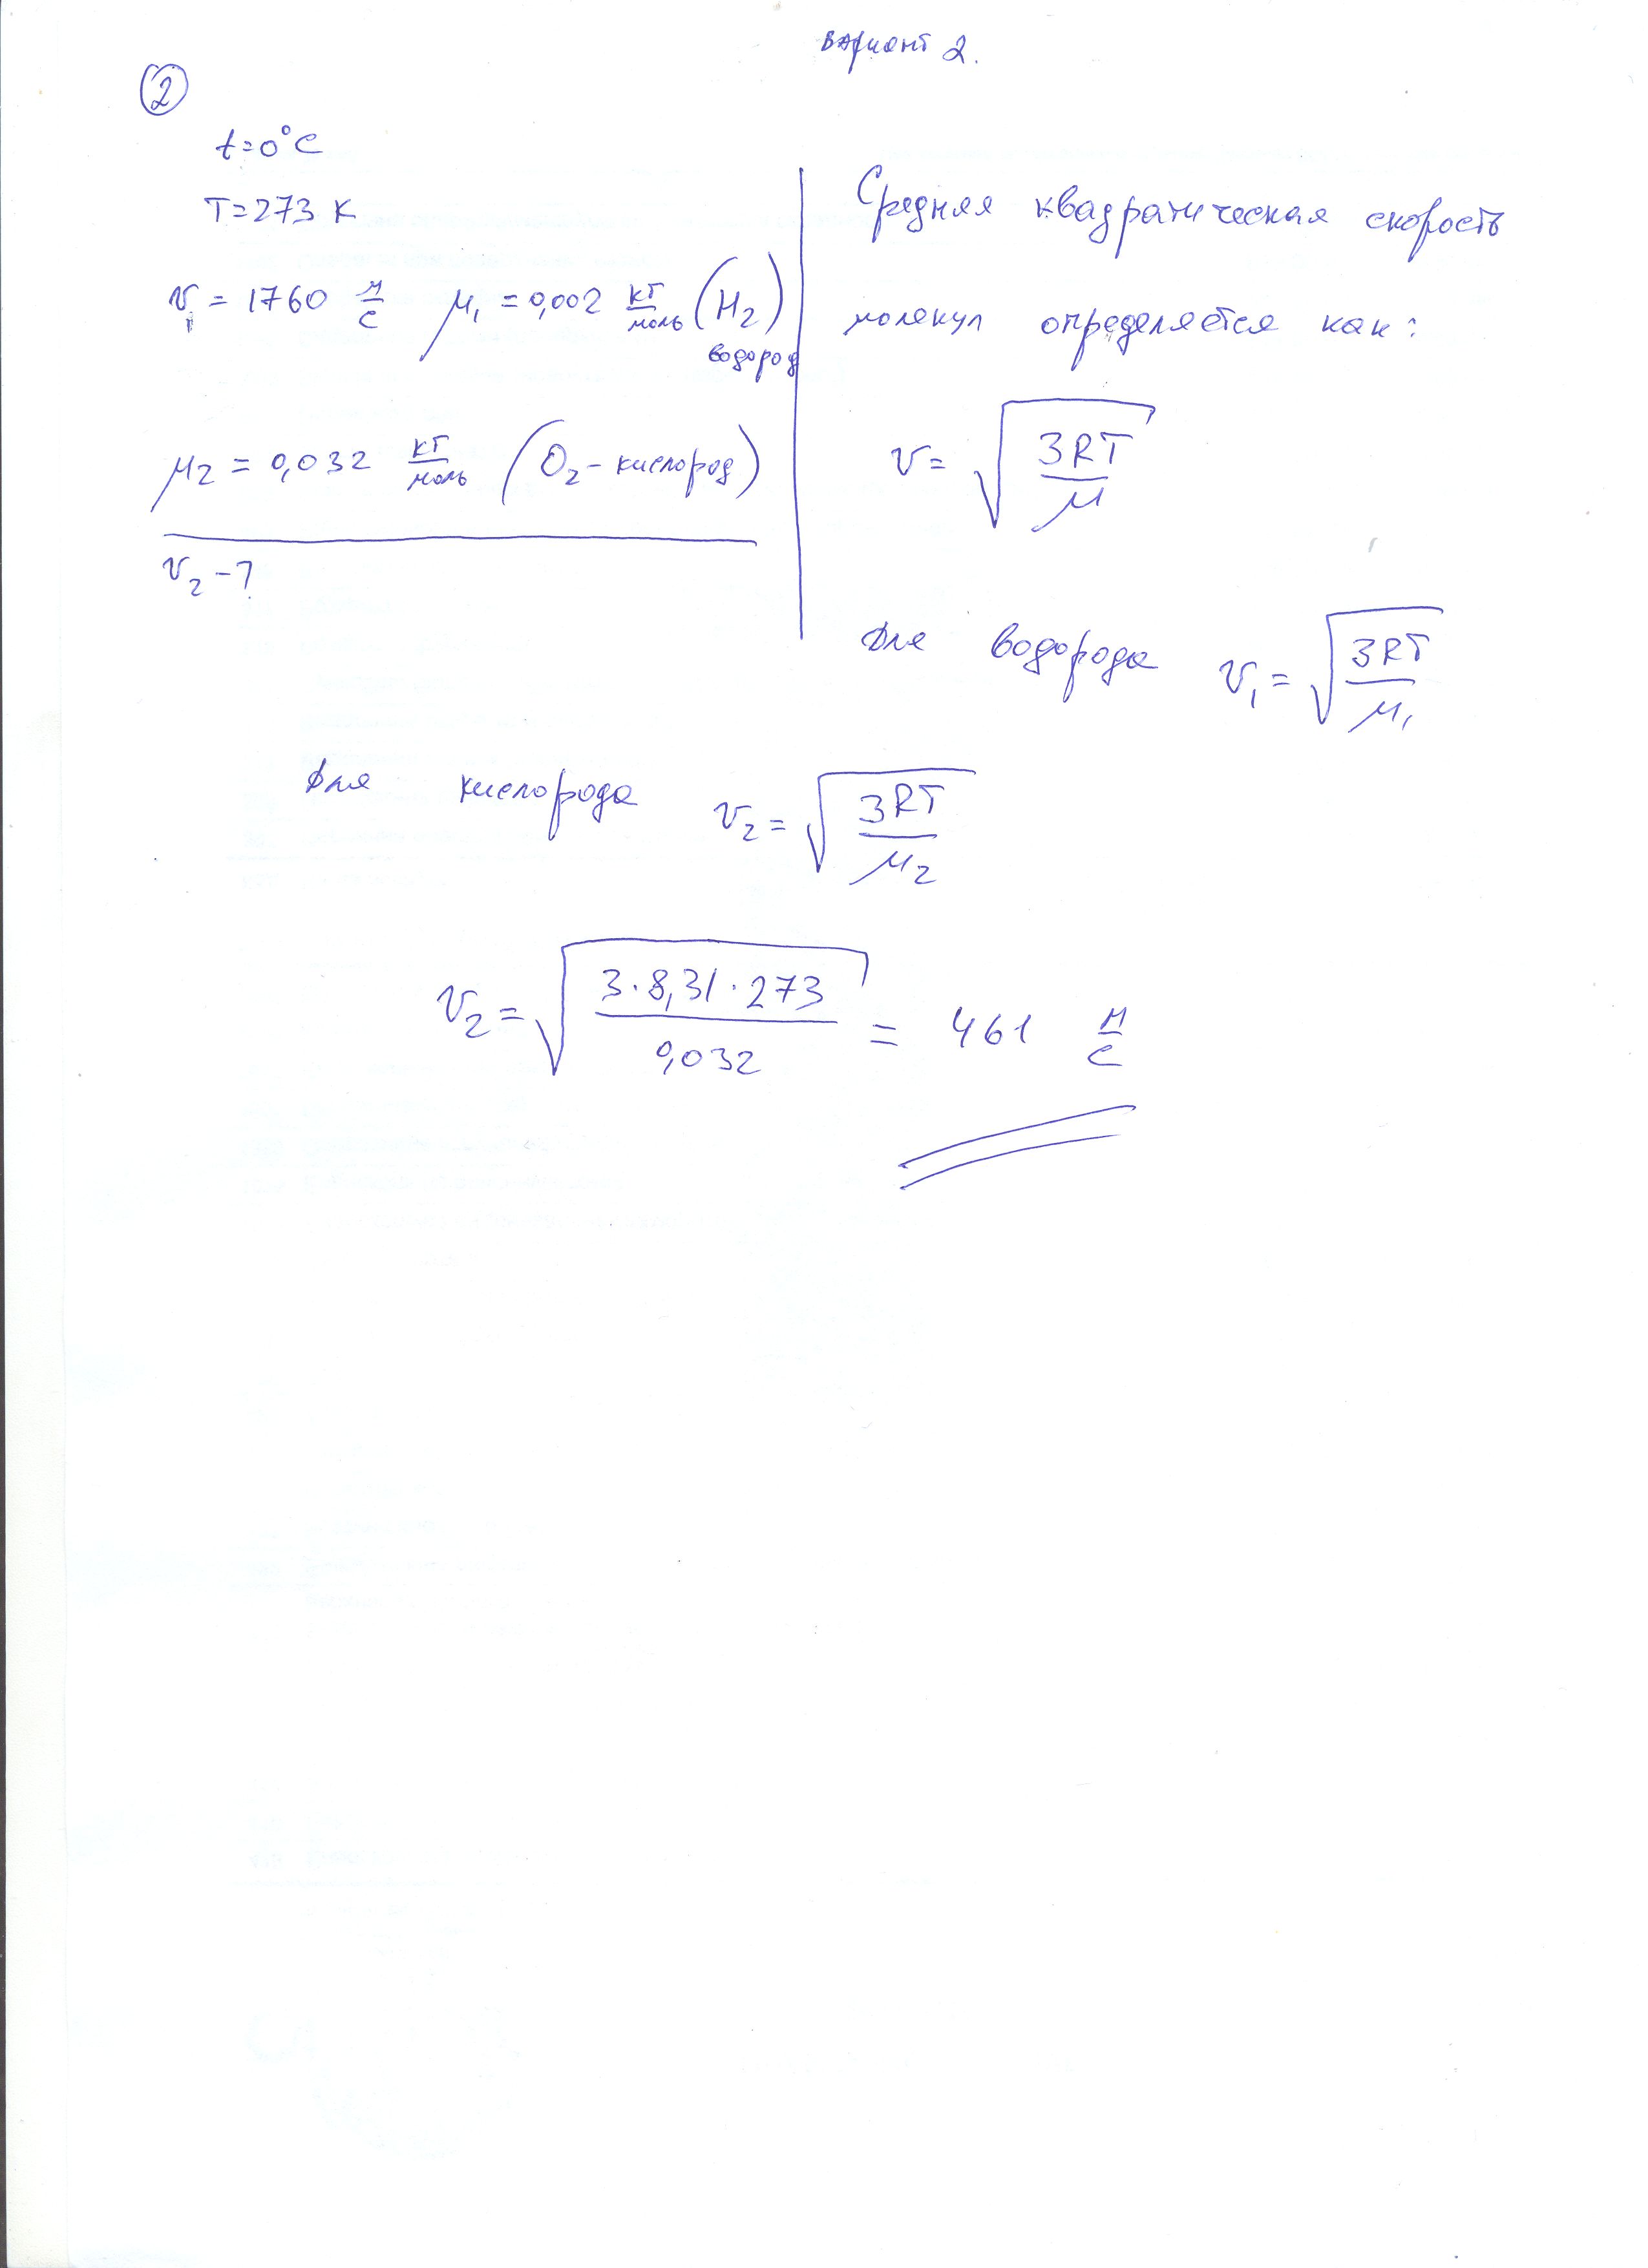 Вариант 2.
②
t=0°C
T=273 К
v₁ = 1760 м/с μ₁ = 0,002 кг/моль (H₂)
водород
μ₂ = 0,032 кг/моль (O₂ – кислород)
v₂ – ?
Средняя квадратическая скорость
молекул определяется как:
v = √(3RT/μ)
Для водорода v₁ = √(3RT/μ₁)
Для кислорода v₂ = √(3RT/μ₂)
v₂ = √(3·8,31·273/0,032) = 461 м/с